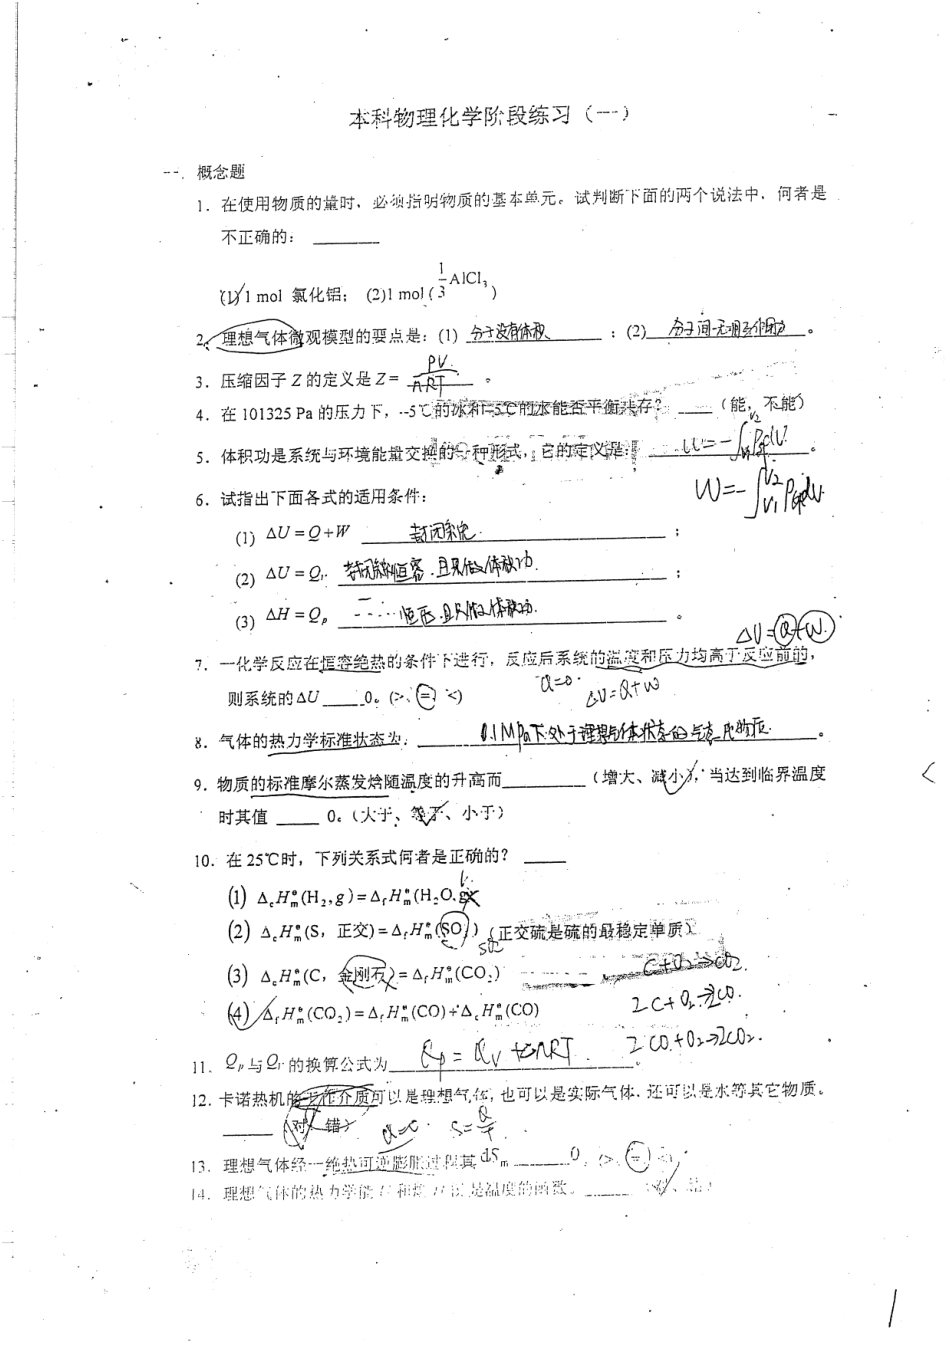 本科物理化学阶段练习（一）
一、概念题
1. 在使用物质的量时，必须指明物质的基本单元。试判断下面的两个说法中，何者是
不正确的：
(1) 1 mol 氯化铝； (2) 1 mol ( 1/3 AlCl₃ )
2. 理想气体微观模型的要点是：(1) 分子没有体积 ；(2) 分子间无相互作用力 。
3. 压缩因子 Z 的定义是 Z= PV/nRT 。
4. 在 101325 Pa 的压力下，-5℃的冰和-5℃的水能否平衡共存？ （能，不能）
5. 体积功是系统与环境能量交换的一种形式，它的定义是： 。
W=-∫V1 V2 P dV
6. 试指出下面各式的适用条件：
(1) ΔU = Q+W 封闭系统 ；
(2) ΔU = Qv 恒容.且只做体积功 ；
(3) ΔH = Qp 恒压.且只做体积功. 。
ΔU=Q+W.
7. 一化学反应在恒容绝热的条件下进行，反应后系统的温度和压力均高于反应前的，
则系统的ΔU 0。(>、=、<) Q=0. ΔU=Q+W
8. 气体的热力学标准状态为： 0.1MPa下处于理想气体状态的气态 。
9. 物质的标准摩尔蒸发焓随温度的升高而 （增大、减小），当达到临界温度
时其值 0。（大于、等于、小于）
10. 在 25℃时，下列关系式何者是正确的？
(1) ΔcH°m(H₂,g)=ΔfH°m(H₂O,g)
(2) ΔcH°m(S，正交)=ΔfH°m(SO₃) （正交硫是硫的最稳定单质） SO2
(3) ΔcH°m(C，金刚石)=ΔfH°m(CO₂) C+O₂→CO₂.
(4) ΔfH°m(CO₂)=ΔfH°m(CO)+ΔcH°m(CO) 2C+O₂→2CO.
2CO+O₂→2CO₂.
11. Qp 与 Qv 的换算公式为 Qp = Qv + ΔnRT .
12. 卡诺热机的工作介质可以是理想气体，也可以是实际气体，还可以是水等其它物质。
（对、错） S=Q/T
13. 理想气体经一绝热可逆膨胀过程其 dSm 0。(>、=、<)
14. 理想气体的热力学能 U 和焓 H 只是温度的函数。 （对、错）
1